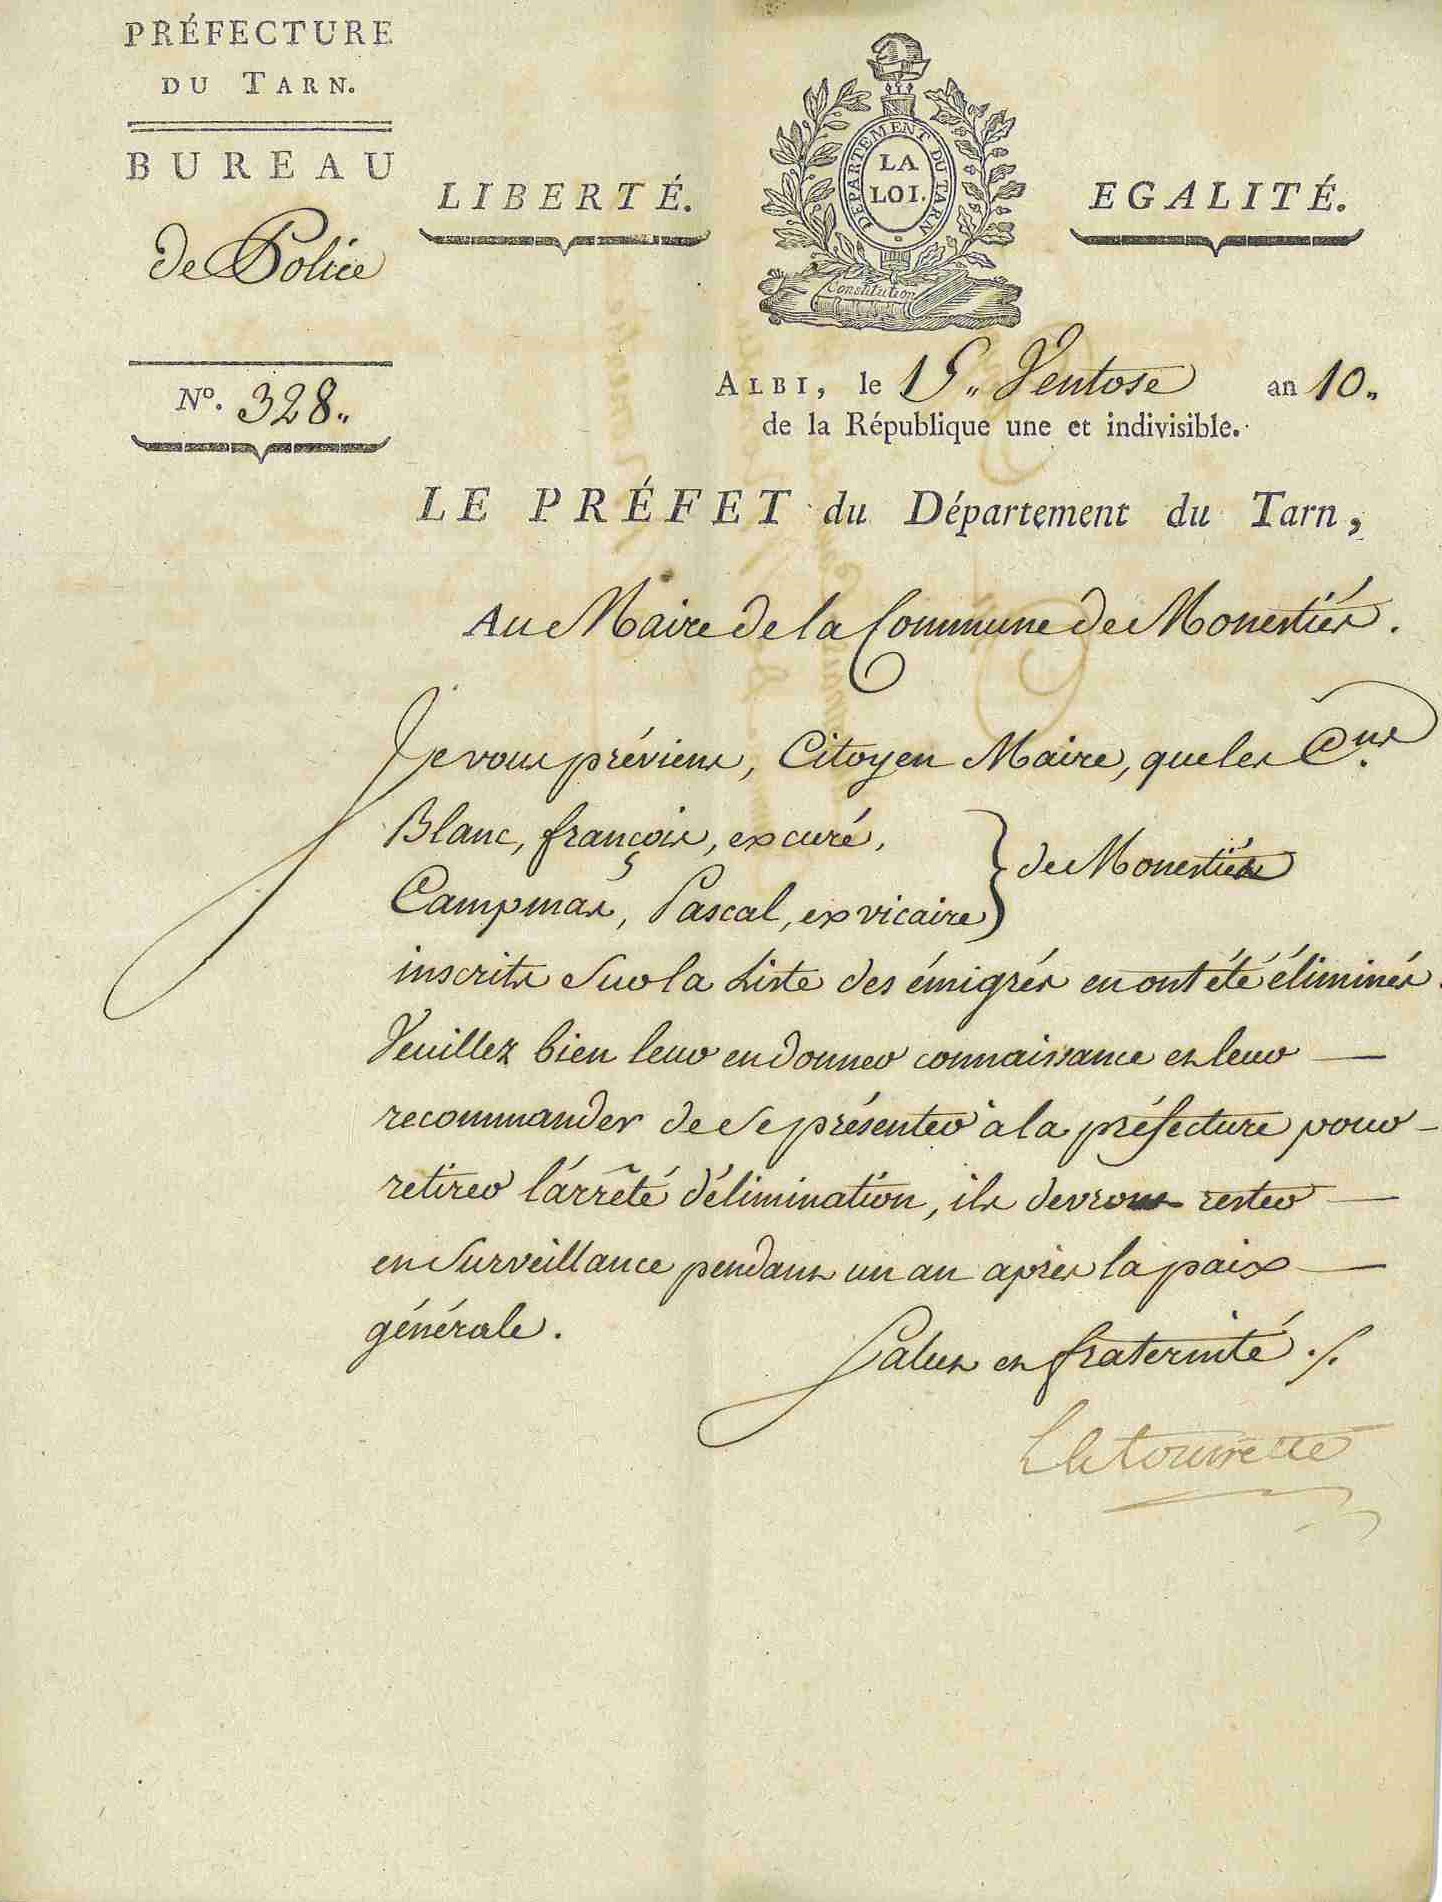 PRÉFECTURE
DU TARN.
BUREAU
de Police
N°. 328.
LIBERTÉ.
DÉPARTEMENT DU TARN
LA
LOI.
Constitution
EGALITÉ.
ALBI, le 15 Ventose an 10.
de la République une et indivisible.
LE PRÉFET du Département du Tarn,
Au Maire de la Commune de Monestiés.
Je vous préviens, Citoyen Maire, que les C.ns
Blanc, françois, ex curé,
de Monestiés
Campmas, Pascal, ex vicaire
inscrits Sur la Liste des émigrés en ont été éliminés.
Veuillez bien leur en donner connaissance et leur
recommander de Se présenter à la préfecture pour
retirer l'arrêté d'élimination, ils devront rester
en Surveillance pendant un an après la paix
générale.
Salut et fraternité ./.
Latourrette